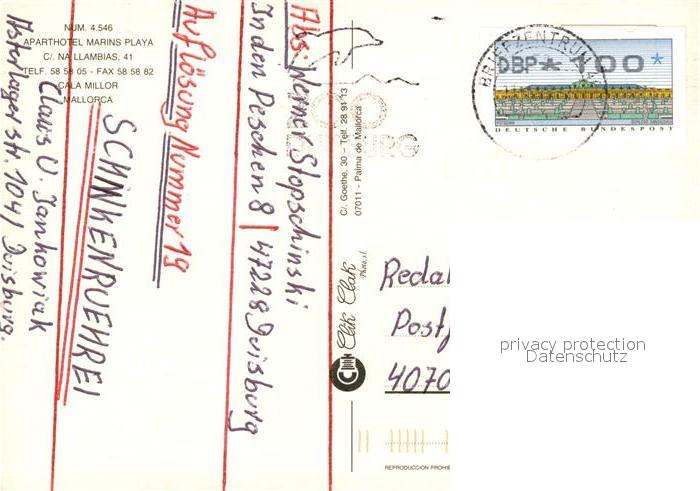 NUM. 4.546
APARTHOTEL MARINS PLAYA
C/. NA LLAMBIAS, 41
TELF. 58 58 05 - FAX 58 58 82
CALA MILLOR
MALLORCA
Abs: Werner Stopschinski
In den Peschen 8 | 47228 Duisburg
Auflösung Nummer 19
SCHINKENRUEHREI
Claus U. Jankowiak
Asterlager str. 104 / Duisburg.
C/. Goethe, 30 – Telf. 28 91 13
07011 - Palma de Mallorca
Clik Clak
BRIEFZENTRUM 4
DBP * 100 *
DEUTSCHE BUNDESPOST
Redak
Postf
4070
privacy protection
Datenschutz
REPRODUCCION PROHIB